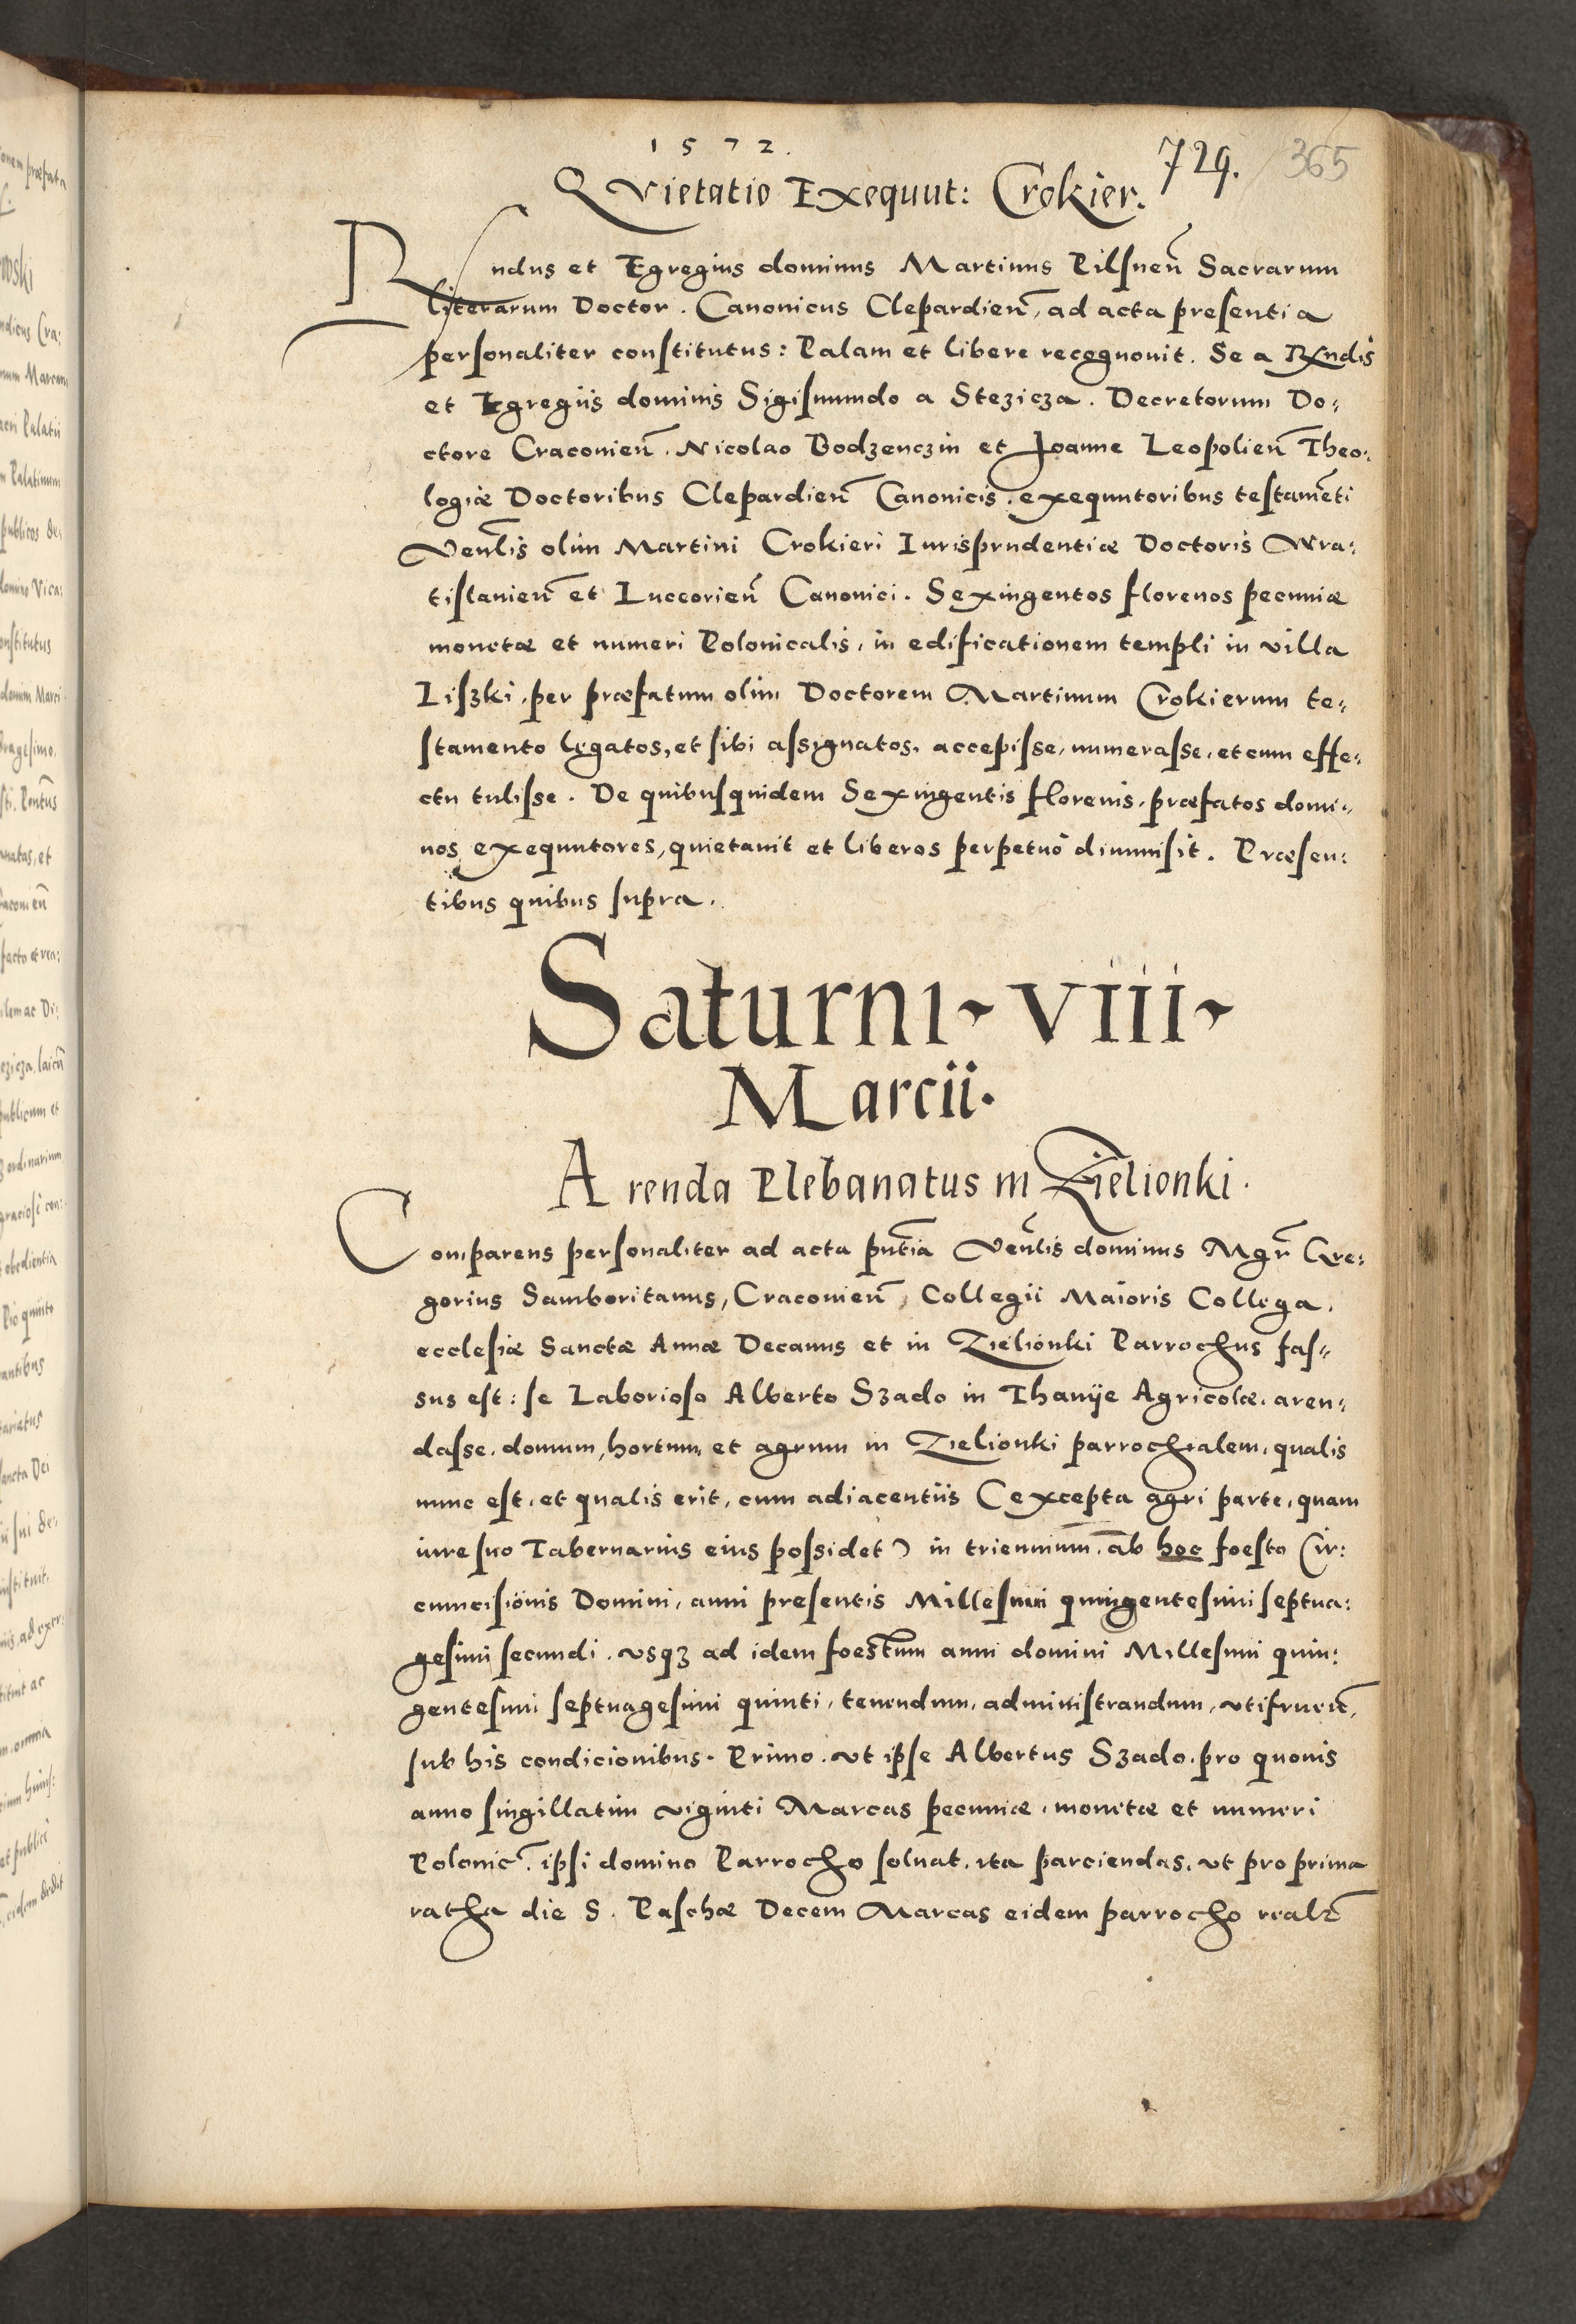 1572.
729. 365
Quietatio Exequut: Crokier.
Rndus et Egregius dominus Martinus Pilsneñ Sacrarum
literarum Doctor. Canonicus Clepardieñ, ad acta presentia
personaliter constitutus: Palam et libere recognouit. Se a Rndis
et Egregiis dominis Sigismundo a Stezicza. Decretorum Do:
ctore Craconieñ. Nicolao Bodzenczin et Joanne Leopolieñ Theo:
logiæ Doctoribus Clepardieñ Canonicis. exequutoribus testam̃eti
Veñlis olim Martini Crokieri Iurisprudentiæ Doctoris Wra:
tislauieñ et Luceorieñ Canonici. Sexingentos florenos pecuniæ
monetæ et numeri Polonicalis, in edificationem templi in villa
Liszki, per præfatum olim Doctorem Martinum Crokierum te:
stamento legatos, et sibi assignatos, accepisse, numerasse, et cum effe:
ctu tulisse. De quibusquidem Sexingentis florenis, præfatos domi:
nos exequutores, quietauit et liberos perpetuò dimmisit. Præsen:
tibus quibus supra.
Saturni. viii.
Marcii.
Arenda Plebanatus in Zielionki.
Comparens personaliter ad acta pñtia Veñlis dominus Mgr̃ Gre:
gorius Samboritanus, Craconieñ, Collegii Maioris Collega,
ecclesiæ Sanctæ Annæ Decanus et in Zielionki Parrochus fas:
sus est: se Laborioso Alberto Szado in Thanije Agricolæ, aren:
dasse, domum, hortum, et agrum in Zielionki parrochialem, qualis
nunc est, et qualis erit, cum adiacentiis (excepta agri parte, quam
iure suo Tabernarius eius possidet) in triennium, ab hoc foesto Cir:
cumcisionis Domini, anni presentis Millesimi quingentesimi septua:
gesimi secundi. vsqȝ ad idem foestum anni domini Millesimi quin:
gentesimi septuagesimi quinti, tenendum, administrandum, vtifrueñ,
sub his condicionibus. Primo. vt ipse Albertus Szado, pro quouis
anno singillatim viginti Marcas pecuniæ, monetæ et numeri
Polonic̃. ipsi domino Parrocho soluat, ita parciendas, vt pro prima
ratha die S. Paschæ Decem Marcas eidem parrocho realr̃